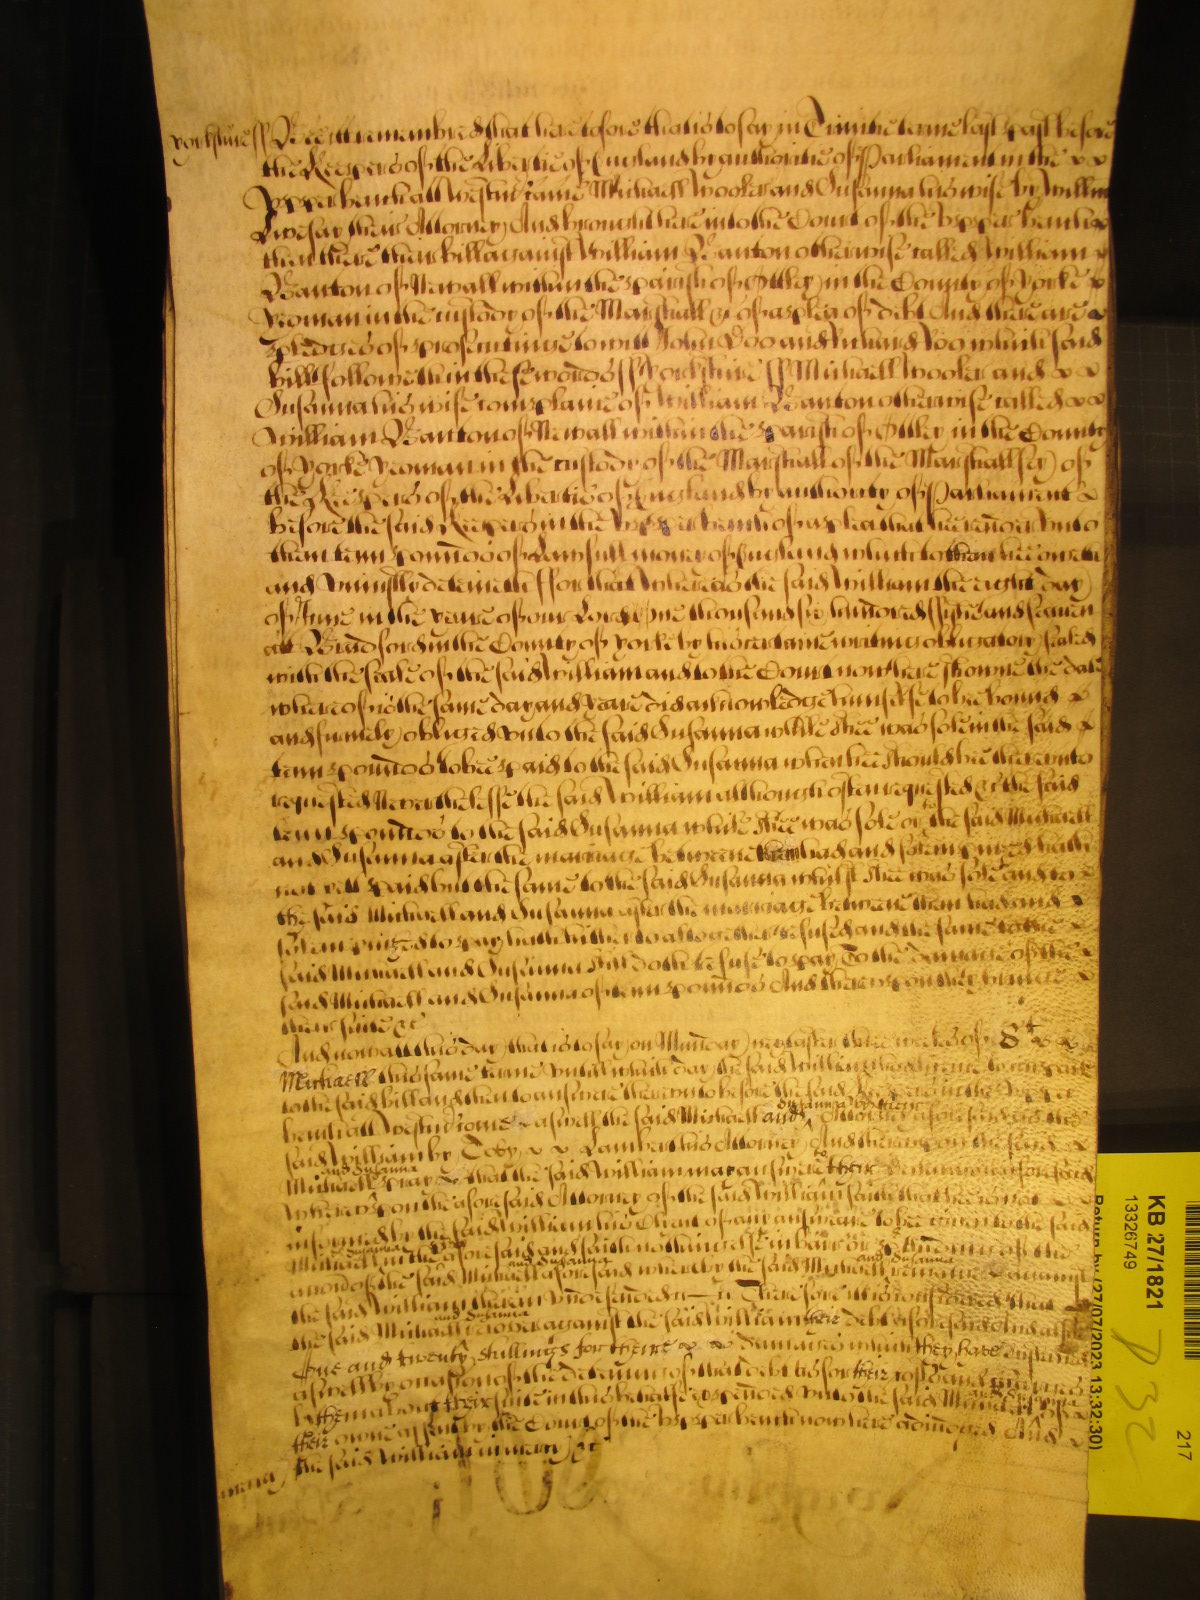 Yorkshire ss Bee itt remembred that heretofore that is to say in Trinitie terme last past before
the Keepers of the Libertie of England by authoritie of Parliament in the
Upper bench att Westm came Michaell Wooker and Susanna his wife by Willm
Livesay their Attorney And brought here into the Court of the Upper bench
then there their bill against William Banton otherwise called William
Banton of Newall within the parish of Otley in the County of Yorke
Yeoman in the custody of the Marshall &c of a plea of debt And there are
pledges of prosecutinge to witt John Doo and Richard Roo which said
bill followeth in these words ss Yorkshire ss Michaell Wooker and
Susanna his wife complaine of William Banton otherwise called
William Banton of Newall within the parish of Otley in the County
of Yorke Yeoman in the custody of the Marshall of the Marshallsey of
the Keepers of the Libertie of England by authority of Parliament
before the said Keepers in the Upper bench of a plea that hee render unto
them tenn pounds of lawfull money of England which to them hee oweth
and uniustly deteineth ffor that Whereas the said William the eight day
of June in the yeare of our Lord One thousand six hundred fiftie and seaven
att Bradford in the County of Yorke by his certaine writing obligatory sealed
with the seale of the said William and to the Court now here showne the date
whereof is the same day and yeare did acknowledge himselfe to bee bound
and firmely obliged unto the said Susanna while shee was sole in the said
tenn pounds to bee paid to the said Susanna when hee should bee thereunto
requested Neverthelesse the said William although often requested &c the said
tenn pounds to the said Susanna while shee was sole or to the said Michaell
and Susanna after the marriage betweene them had and solempnized hath
not yett paid but the same to the said Susanna whilst shee was sole and to
the said Michaell and Susanna after the marriage betweene them had and
solempnized to pay hath hitherto altogether refused and the same to the
said Michaell and Susanna still doth refuse to pay To the damage of the
said Michaell and Susanna of tenn pounds And thereupon they bringe
their suite &c
And now att this day that is to say on Munday next after three weekes of St
Michaell this same terme untill which day the said William had leave to imparle
to the said bill and then to answere thereunto before the said Keepers in the Upper
bench att Westm come aswell the said Michaell and Susanna by their Attorney aforesaid as the
said William by Toby Lambert his Attorney And thereupon the said
Michaell and Susanna pray that the said William may answere to their declaration aforesaid
Whereupon the aforesaid Attorney of the said William saith that hee is not
informed by the said William his Client of any answeare to bee given to the said
Michaell and Susanna in the aforesaid and saith nothinge else in barr or of the
accion of the said Michaell and Susanna aforesaid whereby the said Michaell and Susanna remaine against
the said William therein undefended &c Therefore itt is considered that
the said Michaell and Susanna recover against the said William their debt aforesaid And alsoe
One and twenty shillings for theire damages which they have susteined
aswell by occasion of the deteining of that debt as for their costs and charges
by them about their suite in this behalfe expended unto the said Michaell and Susanna
their owne assent by the Court of the Upper bench now here adiudged And
the said William in mercy &c
KB 27/1821
13326749
217
Return by (27/07/2023 13:32:30)
P 32